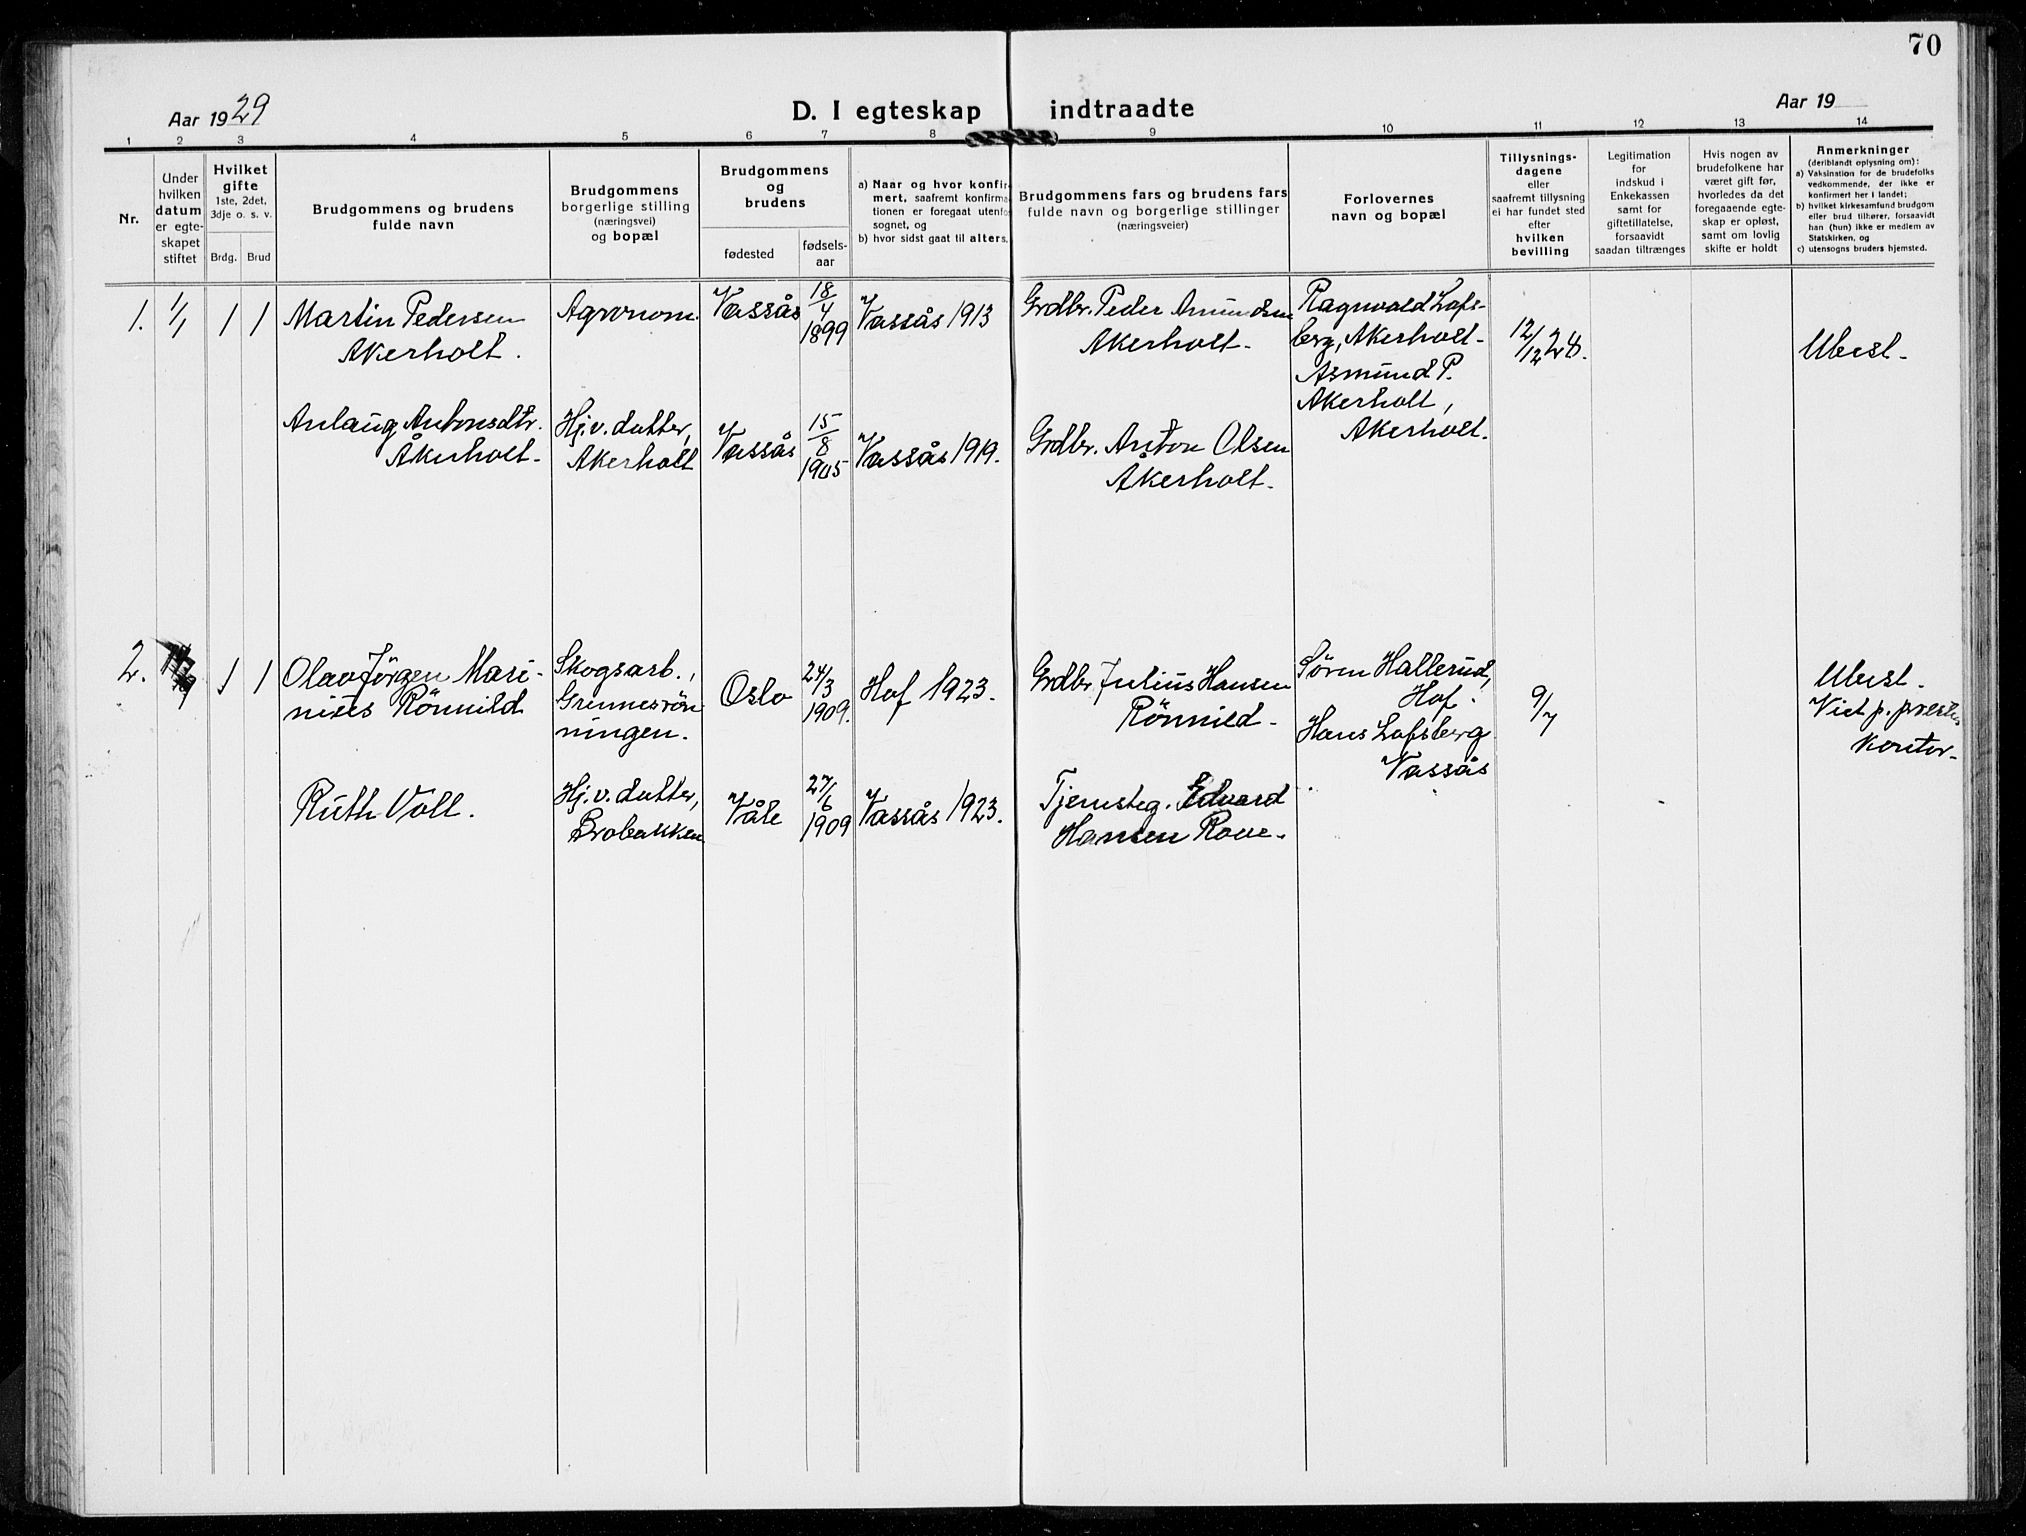 70
Aar 1929
D. I egteskap indtraadte
Aar 19
1 2 3 4 5 6 7 8 9 10 11 12 13 14
Nr.
Under
hvilken
datum
er egte-
skapet
stiftet
Hvilket
gifte
1ste, 2det,
3dje o. s. v.
Brdg. Brud
Brudgommens og brudens
fulde navn
Brudgommens
borgerlige stilling
(næringsvei)
og bopæl
Brudgommens
og
brudens
fødested
fødsels-
aar
a) Naar og hvor konfir-
mert, saafremt konfirma-
tionen er foregaat utenfor
sognet, og
b) hvor sidst gaat til alters.
Brudgommens fars og brudens fars
fulde navn og borgerlige stillinger
(næringsveier)
Forlovernes
navn og bopæl
Tillysnings-
dagene
eller
saafremt tillysning
ei har fundet sted
efter
hvilken
bevilling
Legitimation
for
indskud i
Enkekassen
samt for
giftetillatelse,
forsaavidt
saadan tiltrænges
Hvis nogen av
brudefolkene har
været gift før,
hvorledes da det
foregaaende egte-
skap er opløst,
samt om lovlig
skifte er holdt
Anmerkninger
(deriblandt oplysning om):
a) Vaksination for de brudefolks
vedkommende, der ikke er
konfirmert her i landet;
b) hvilket kirkesamfund brudgom
eller brud tilhører, forsaavidt
han (hun) ikke er medlem av
Statskirken, og
c) utensogns bruders hjemsted.
1.
1/1
1 1
Martin Pedersen
Akerholt.
Agronom.
Vassås
18/4
1899
Vassås 1913
Grdbr. Peder Amundsen
Akerholt.
Ragnvald Lofs-
berg, Akerholt.
Asmund P.
Akerholt,
Akerholt.
12/12 28.
Ubesl.
Anlaug Antonsdtr.
Åkerholt.
Hj.v. datter,
Akerholt
Vassås
15/8
1905
Vassås 1919.
Grdbr. Anton Olsen
Åkerholt.
2.
1 1
Olav Jörgen Mari-
nius Rönnild
Skogsarb.,
Grennesrön
ningen.
Oslo
24/3
1909.
Hof 1923.
Grdbr Julius Hansen
Rönnild.
Søren Hallerud,
Hof.
Hans Lofsberg
Vassås
9/7
Ubesl.
Viet p. prestens
kontor.
Ruth Voll.
Hj.v. datter,
Brobakken
Våle
27/6
1909
Vassås 1923.
Tjernsteg. Edvard
Hansen Rove.